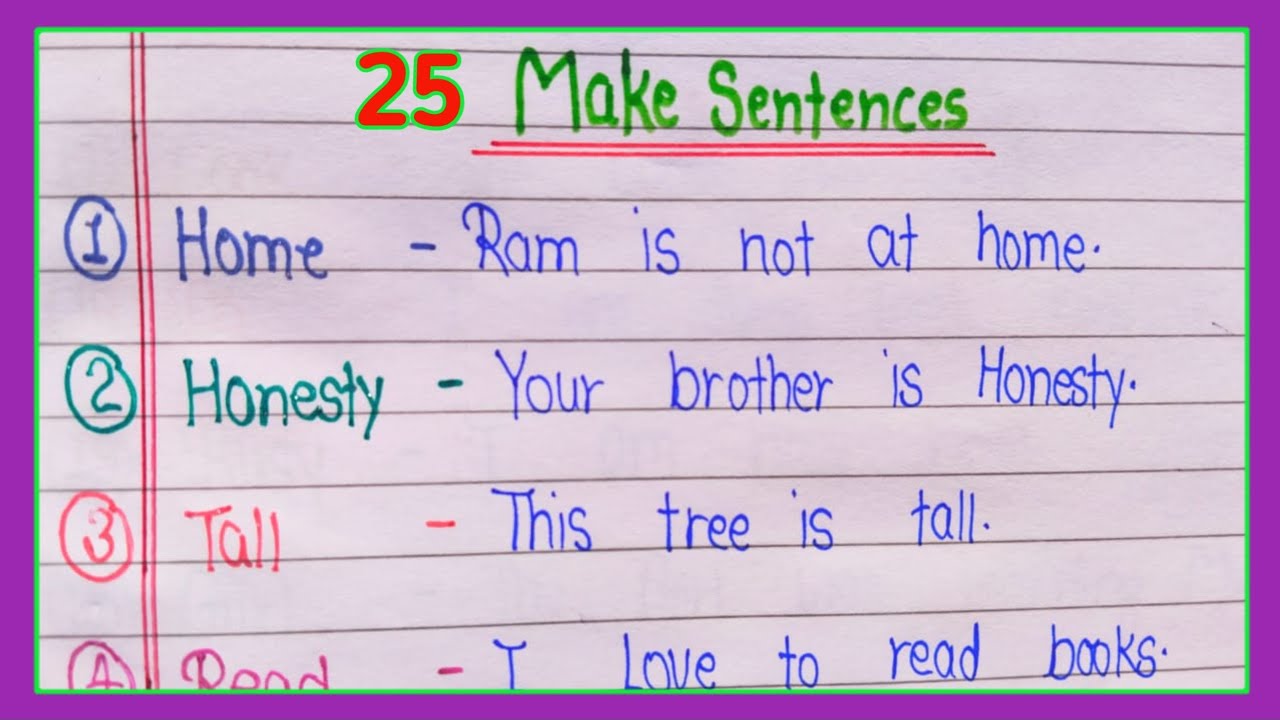 25 Make Sentences
① Home - Ram is not at home.
② Honesty - Your brother is Honesty.
③ Tall - This tree is tall.
④ Read - I Love to read books.